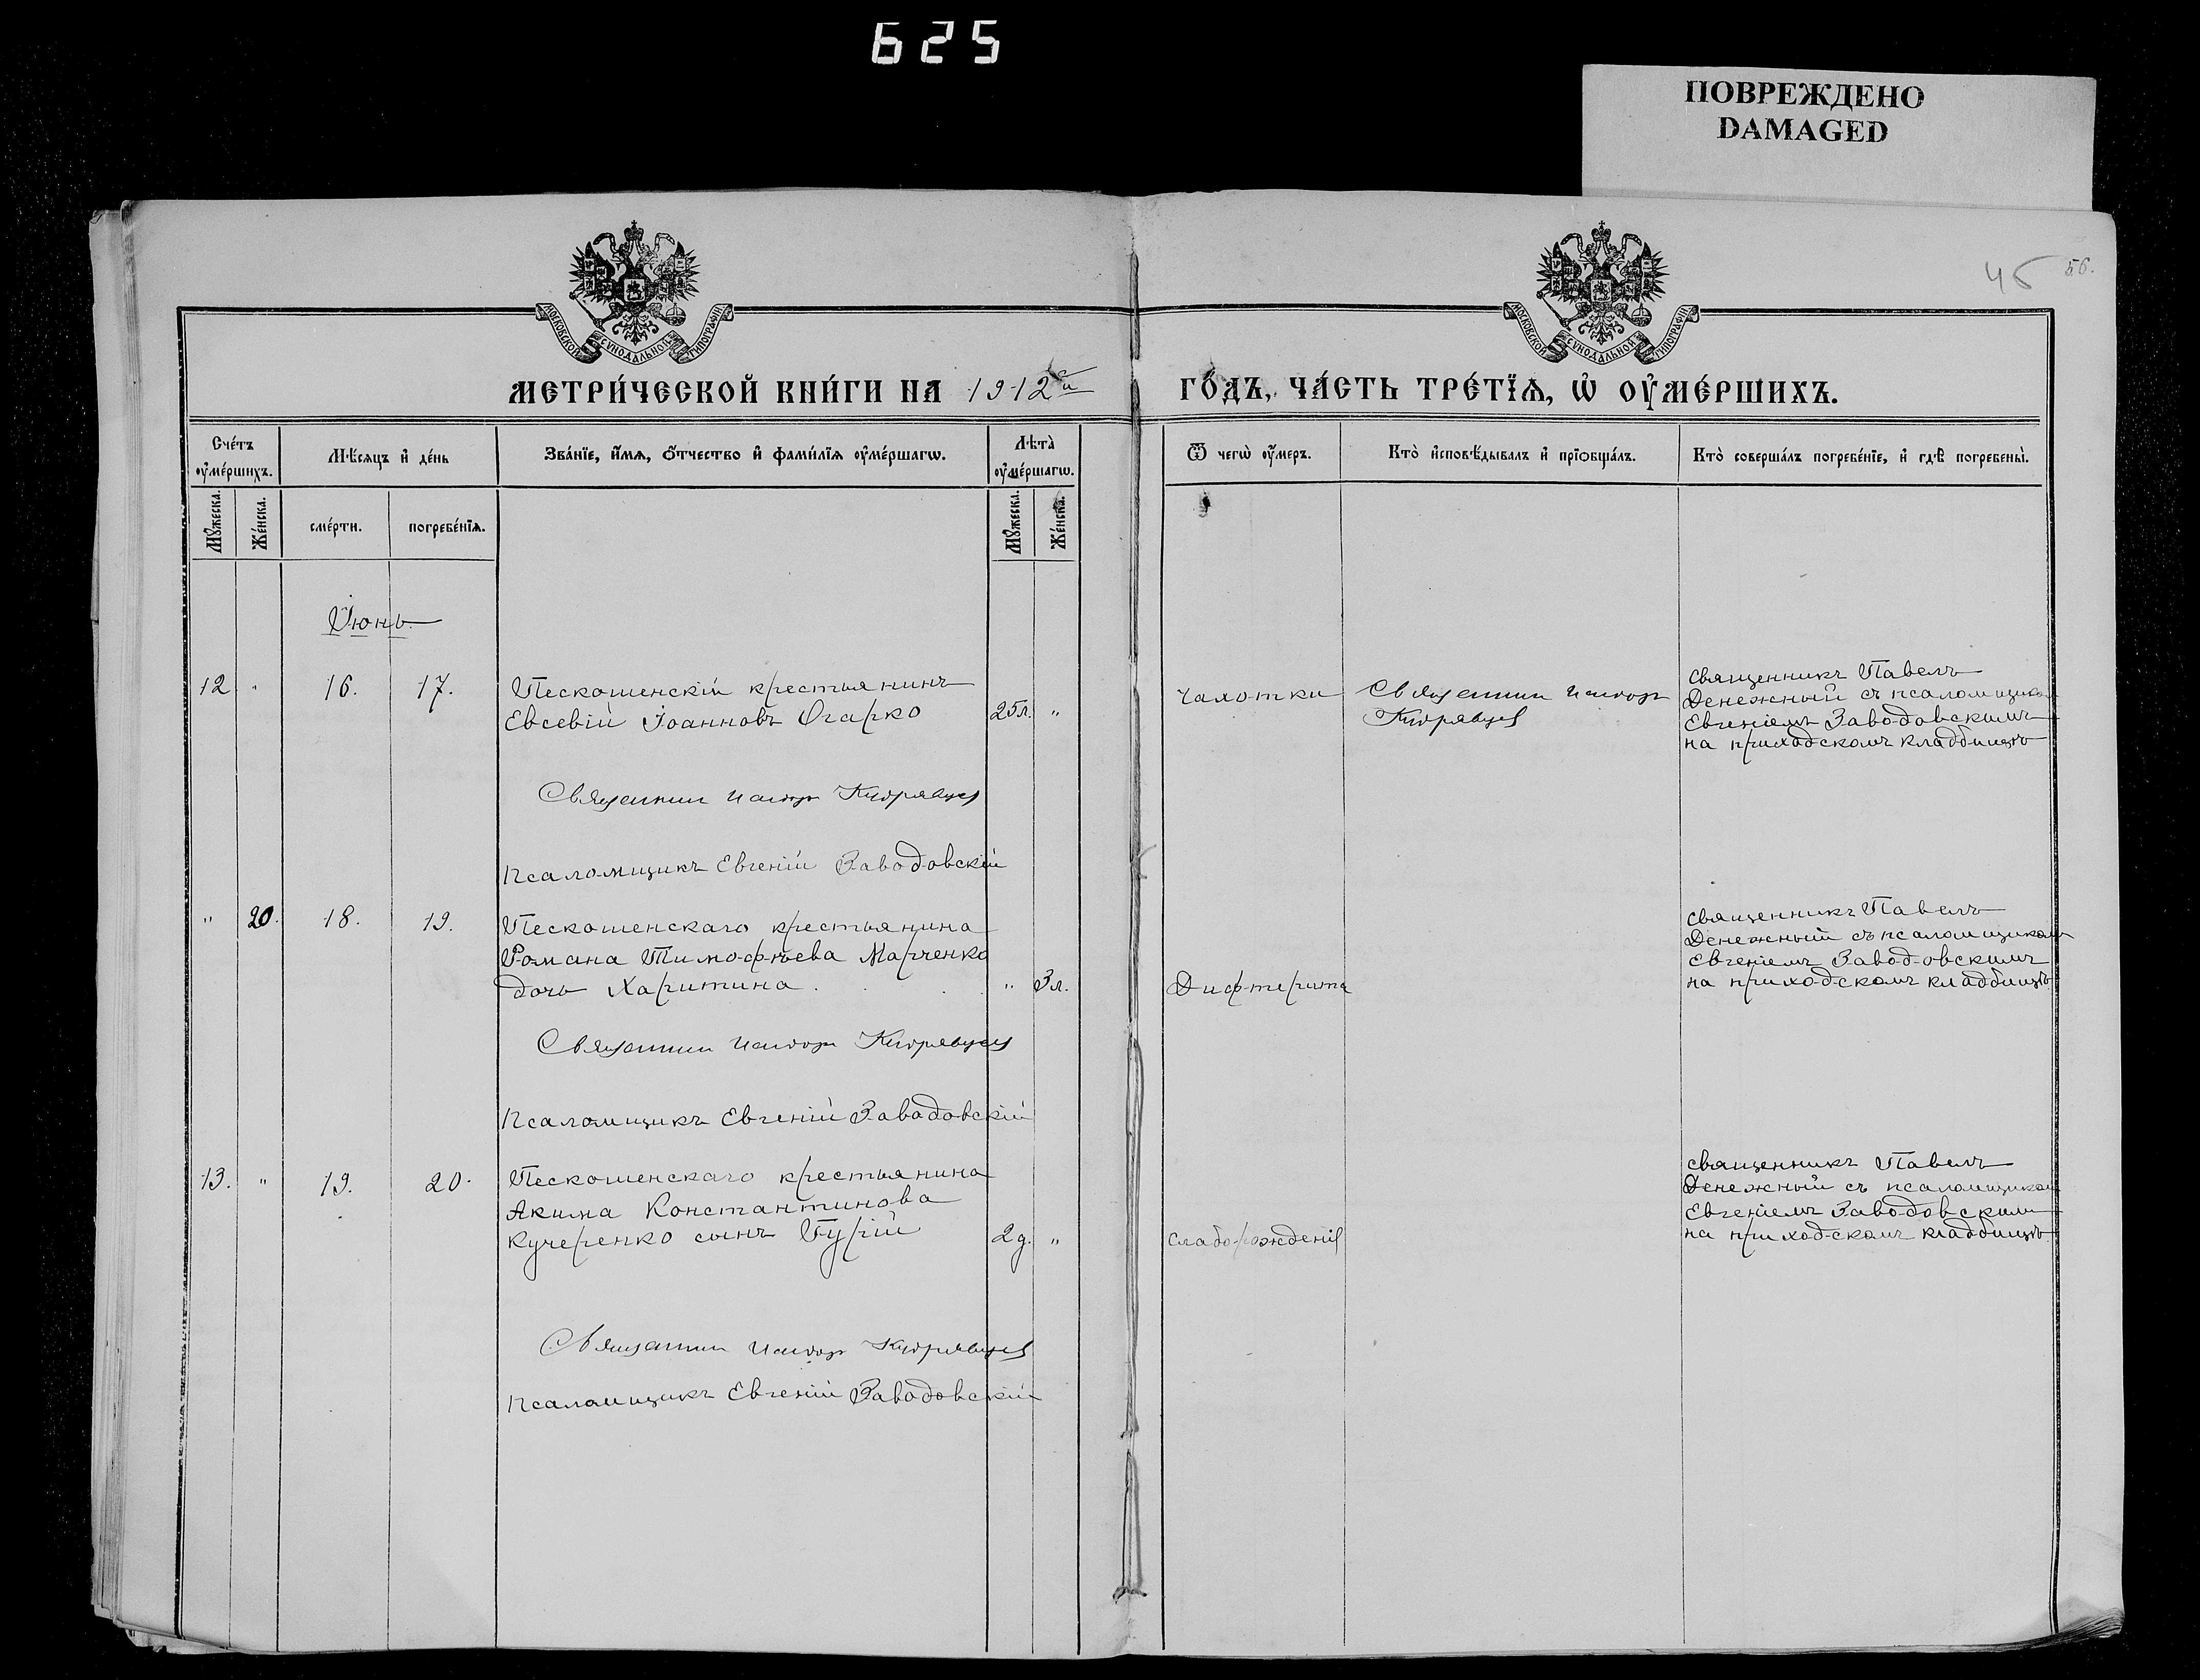 625
ПОВРЕЖДЕНО
DAMAGED
45 56.
МОСКОВСКОЙ СѴНОДАЛЬНОЙ ТИПОГРАФІИ
МОСКОВСКОЙ СѴНОДАЛЬНОЙ ТИПОГРАФІИ
МЕТРИ́ЧЕСКОЙ КНИ́ГИ НА 1912й ГО́ДЪ, ЧА́СТЬ ТРЕ́ТЇѦ, Ѡ҆ ОУ҆МЕ́РШИХЪ.
Сче́тъ оу҆ме́ршихъ.
Мѣ́сѧцъ и҆ де́нь
Зва́нїе, и҆́мѧ, ѻ҆́тчество и҆ фами́лїѧ оу҆ме́ршагѡ.
Лѣта̀ оу҆ме́ршагѡ.
Ѿ чегѡ̀ оу҆́меръ.
Кто̀ и҆сповѣ́дывалъ и҆ прїѻбща́лъ.
Кто̀ соверша́лъ погребе́нїе, и҆ гдѣ̀ погребены̀.
Мꙋ́жеска.
Же́нска.
сме́рти.
погребе́нїѧ.
Мꙋ́жеска.
Же́нска.
Іюнь
12 " 16. 17. Пескошенскій крестьянинъ
Евсевій Іоанновъ Огарко 25л. "
Чахотки
Священник Исидор
Кудрявцев
священникъ Павелъ
Денежный съ псаломщиком
Евгеніемъ Заводовскимъ
на приходскомъ кладбищѣ
Священник Исидор Кудрявцев
Псаломщикъ Евгеній Заводовскій
" 20. 18. 19. Пескошенскаго крестьянина
Романа Тимофѣева Марченко
дочь Харитина . . . " 3л.
Дифтерита
священникъ Павелъ
Денежный съ псаломщикомъ
Евгеніемъ Заводовскимъ
на приходскомъ кладбищѣ
Священник Исидор Кудрявцев
Псаломщикъ Евгеній Заводовскій
13. " 19. 20. Пескошенскаго крестьянина
Акима Константинова
Кучеренко сынъ Гурій 2д. "
слаборожденія
священникъ Павелъ
Денежный съ псаломщиком
Евгеніемъ Заводовским
на приходскомъ кладбищѣ
Священник Исидор Кудрявцев
Псаломщикъ Евгеній Заводовскій